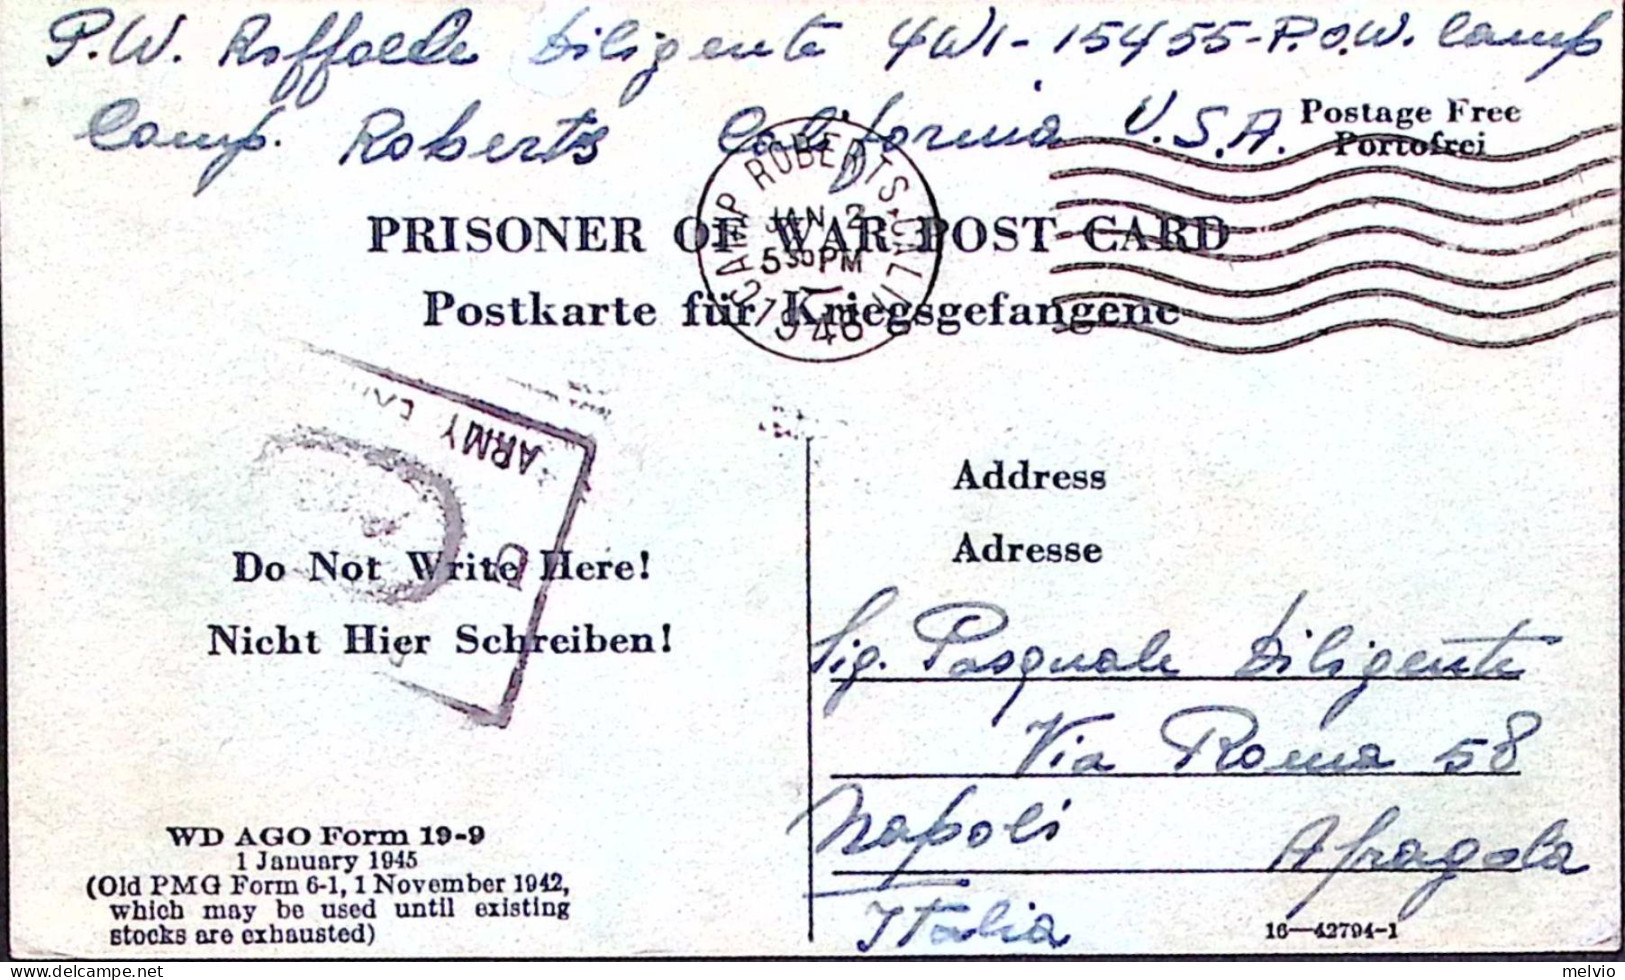 P.W. Raffaele Diligente 4WI-15455-P.O.W. Camp
Camp. Roberts California U.S.A.
Postage Free
Portofrei
CAMP ROBERTS CALIF
JAN 2
5 30 PM
1946
PRISONER OF WAR POST CARD
Postkarte für Kriegsgefangene
ARMY
Address
Adresse
Do Not Write Here!
Nicht Hier Schreiben!
Sig. Pasquale Diligente
Via Roma 58
Napoli Afragola
Italia
WD AGO Form 19-9
1 January 1945
(Old PMG Form 6-1, 1 November 1942,
which may be used until existing
stocks are exhausted)
16—42794-1
melvio